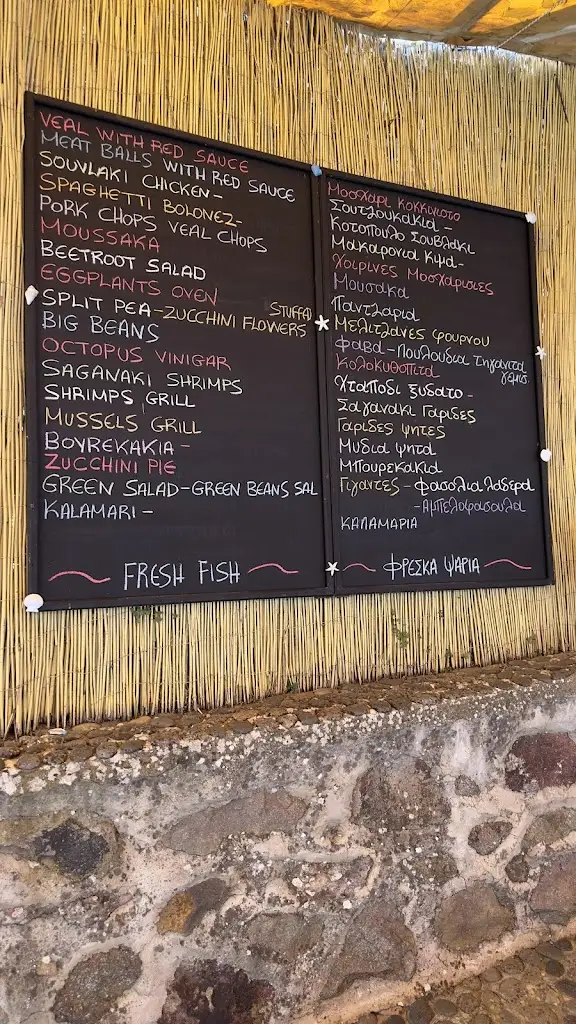 VEAL WITH RED SAUCE
MEAT BALLS WITH RED SAUCE
SOUVLAKI CHICKEN-
SPAGHETTI BOLONEZ-
PORK CHOPS VEAL CHOPS
MOUSSAKA
BEETROOT SALAD
EGGPLANTS OVEN
STUFFAD
SPLIT PEA-ZUCCHINI FLOWERS
BIG BEANS
OCTOPUS VINIGAR
SAGANAKI SHRIMPS
SHRIMPS GRILL
MUSSELS GRILL
BOYREKAKIA-
ZUCCHINI PIE
GREEN SALAD-GREEN BEANS SAL
KALAMARI-
FRESH FISH
Μοσχαρι κοκκινιστο
Σουτζουκακια-
Κοτοπουλο Σουβλακι
Μακαρονια Κιμα-
Χοιρινες Μοσχαρισιες
Μουσακα
Παντζαρια
Μελιτζανες φουρνου
φαβα-Πουλουδια τηγανιτα
γεμισ.
Κολοκυθοπιτα
Χταποδι ξυδατο-
Σαγανακι Γαριδες
Γαριδες ψητες
Μυδια ψητα
Μπουρεκακια
Γιγαντες-φασολια λαδερα
-Αμπελοφασουλα
ΚΑΛΑΜΑΡΙΑ
ΦΡΕΣΚΑ ΨΑΡΙΑ